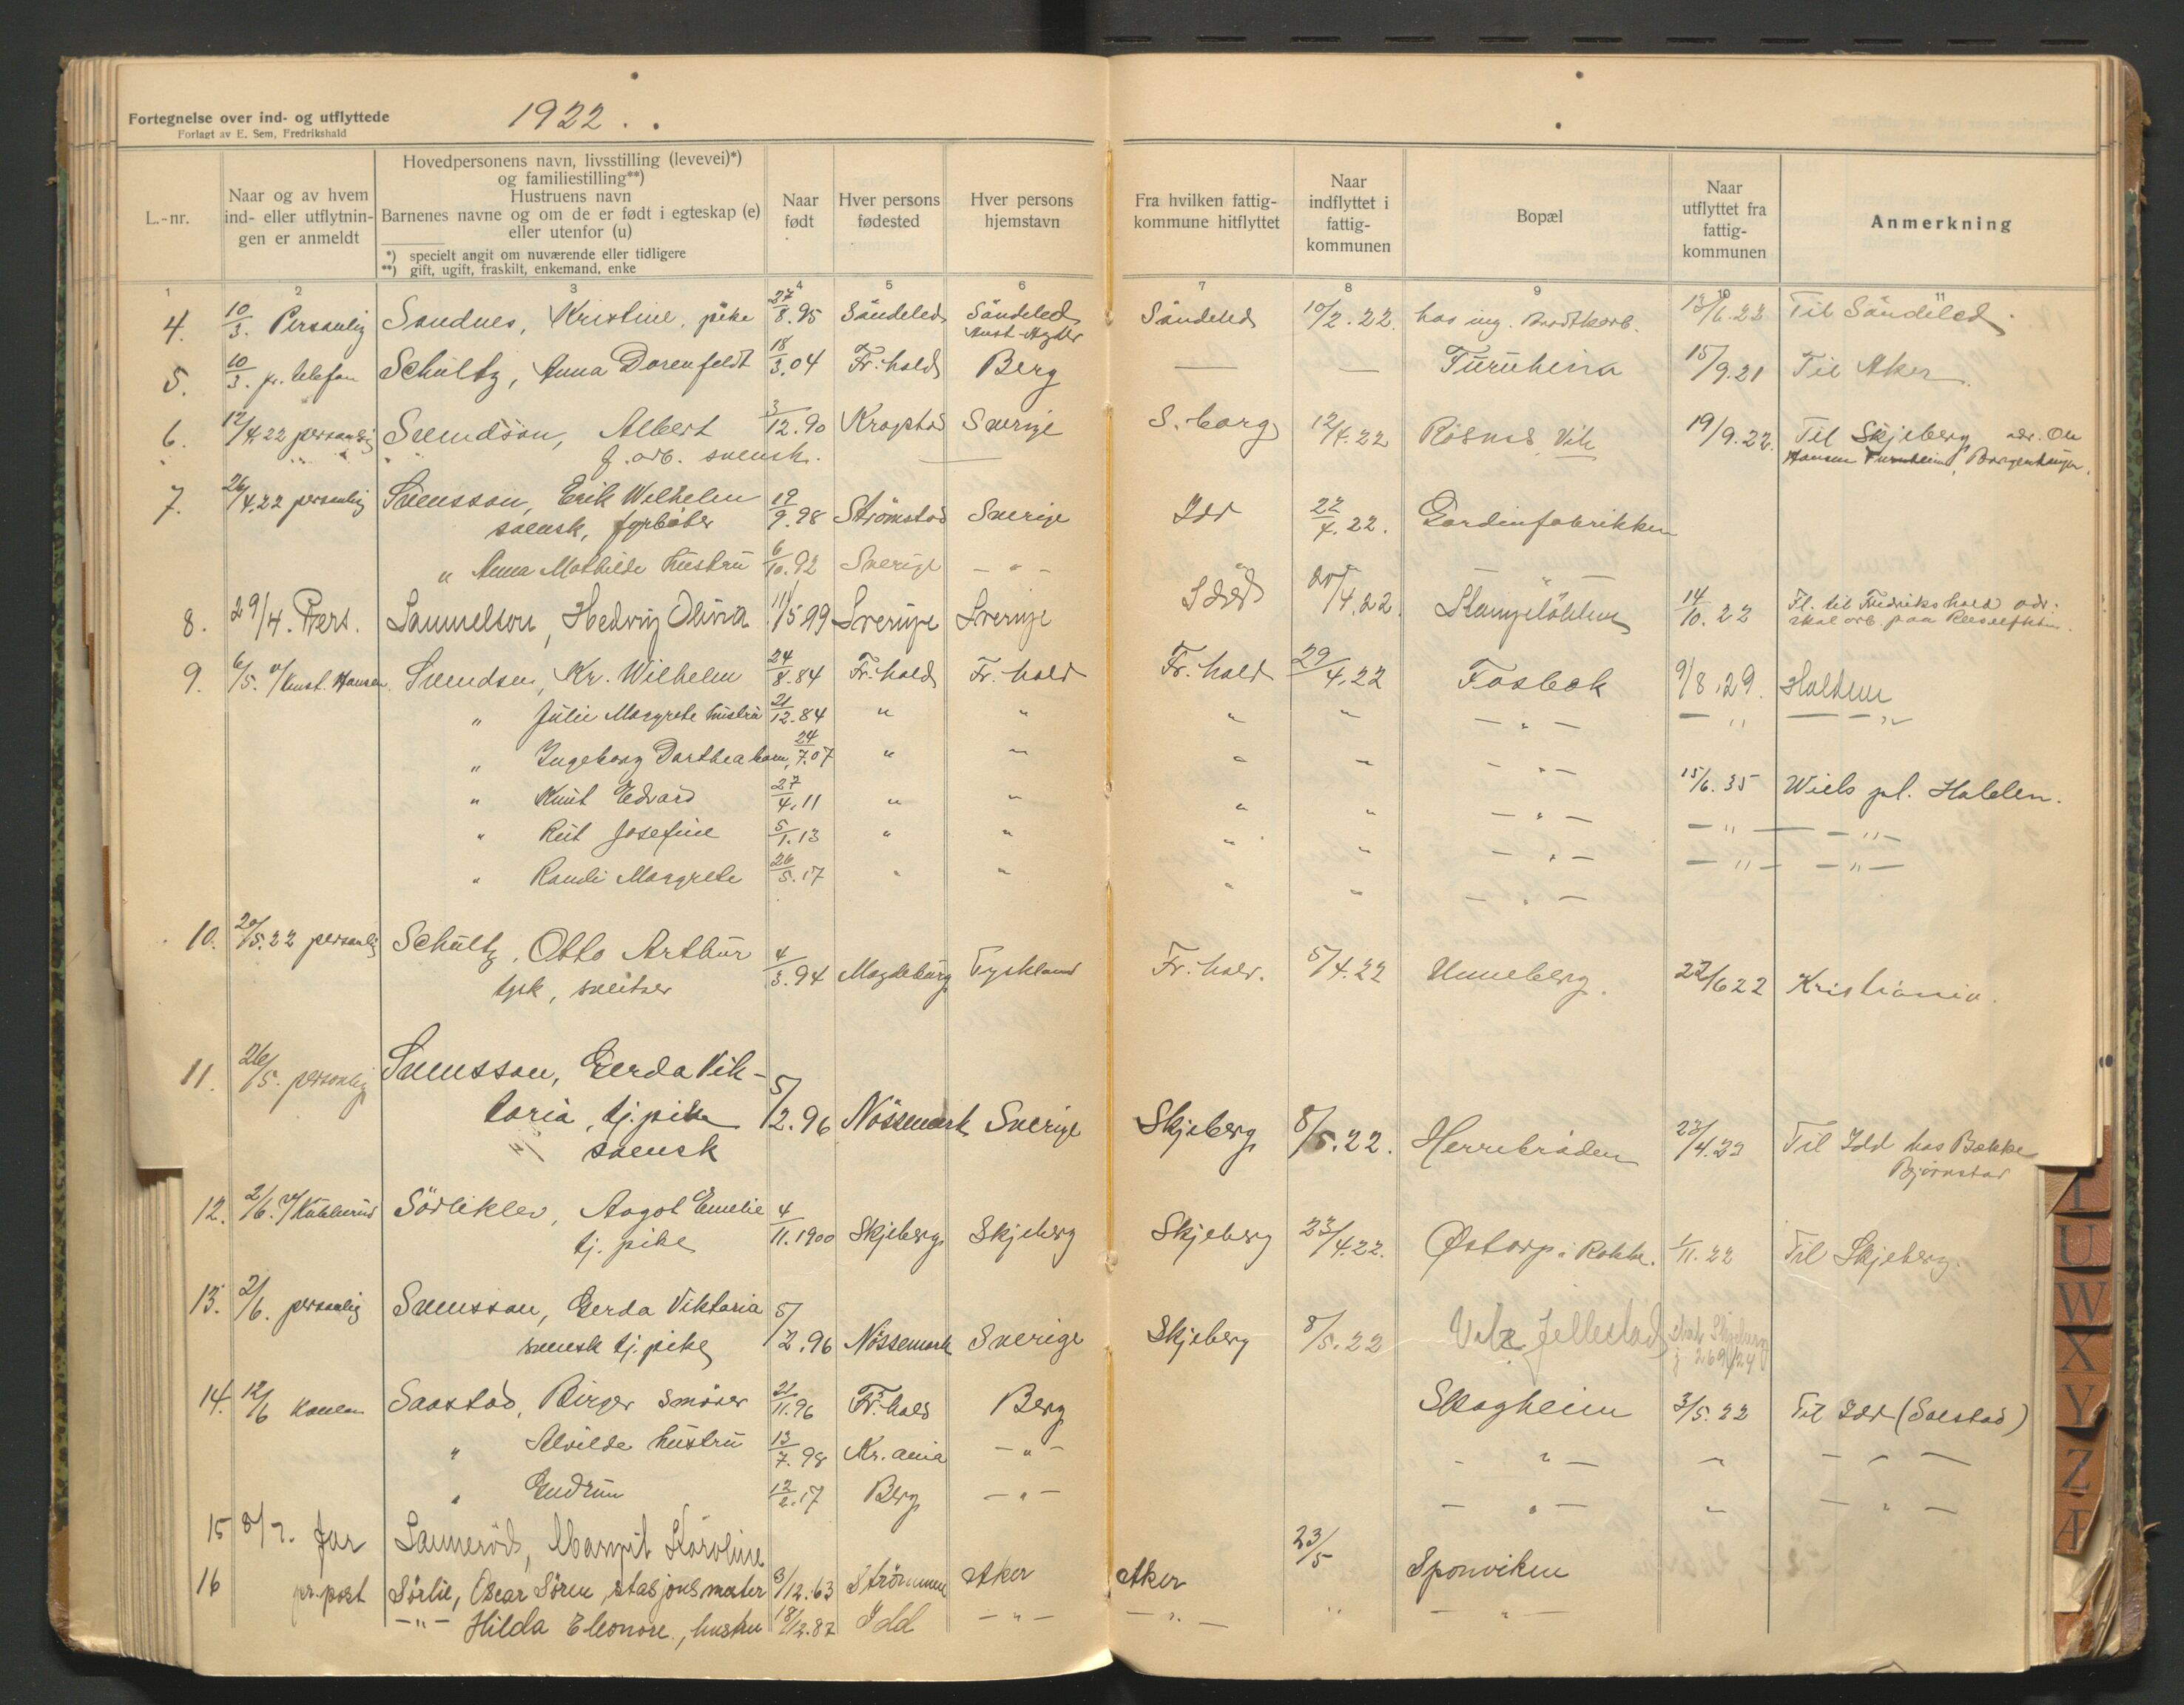 Fortegnelse over ind- og utflyttede
Forlagt av E. Sem, Fredrikshald
1922.
L.-nr.
Naar og av hvem ind- eller utflytnin- gen er anmeldt
Hovedpersonens navn, livsstilling (levevei)*)
og familiestilling**)
Hustruens navn
Barnenes navne og om de er født i egteskap (e)
eller utenfor (u)
*) specielt angit om nuværende eller tidligere
**) gift, ugift, fraskilt, enkemand, enke
Naar født
Hver persons fødested
Hver persons hjemstavn
Fra hvilken fattig- kommune hitflyttet
Naar indflyttet i fattig- kommunen
Bopæl
Naar utflyttet fra fattig- kommunen
Anmerkning
1 2 3 4 5 6 7 8 9 10 11
4. 10/3. Personlig Sandnes, Kristine, pike 27/8.95 Søndeled Søndeled Søndeled 10/2.22. hos ing. 13/6.22 Til Søndeled
Aust-Agder
5. 10/3. pr. telefon Schultz, Anna Dorenfeldt 18/3.04 Fr.hald Berg — — Furuheim 15/9.21 Til Aker.
6. 12/4.22 personlig Svendson, Albert 3/12.90 Kropstad Sverige S.borg 12/4.22 Røsnes Vik 19/9.22. Til Skjeberg adr. Ole
f. arb. svensk. — Hansen Furuheim, Borgenhaugen.
7. 26/4.22 personlig Svensson, Erik Wilhelm 19/9.98 Strømstad Sverige Idd 22/4.22. Gardinfabrikken
svensk, fyrbøter
" Anna Mathilde hustru 6/10.92 Sverige - " -
8. 29/4. Pers. Samuelson, Hedvig Olivia 11/5 99 Sverige Sverige Idd 20/4.22. Stangeløkken 14/10.22 Fl. til Fredrikshald adr.
skal arb. paa
9. 6/5. v/ Knut Hansen. Svendsen, Kr. Wilhelm 24/8.84 Fr.hald Fr.hald Fr.hald 29/4.22 Fosbæk 9/8.29. Halden
" Julie Margrete hustru 21/12.84 " " " " - " - - " - " -
" Ingeborg Dorthea barn, 24/7.07 " " " " - " -
" Knut Edvard 27/4.11 " " " " - " - 15/6.35 Wiels pl. Halden.
" Rut Josefine 5/1.13 " " " " - " - - " - - " -
" Randi Margrete 26/5.17 " " " " - " - - " - - " -
10. 20/5.22 personlig Schultz, Otto Arthur 4/3.94 Magdeburg Tyskland Fr.hald. 5/4.22 Unneberg. 22/6 22 Kristiania.
tysk, sveitser
11. 26/5. personlig Svensson, Gerda Vik-
toria, tj.pike 5/2.96 Nössemark Sverige Skjeberg 8/5.22. Herrebrøden 23/4.23 Til Idd hos Bække
svensk Bjørnstad
12. 2/6. v/ Sørlikleo, Aagot Emelie 4/11.1900 Skjeberg Skjeberg Skjeberg 23/4.22. Østorp i Rokke. 1/11.22 Til Skjeberg.
tj. pike
13. 2/6. personlig Svensson, Gerda Viktoria 5/2.96 Nössemark Sverige Skjeberg 8/5.22 Jellestad Skjeberg
svensk tj.pike j. 269/24
14. 12/6 Saastad, Birger smører 21/11.96 Fr.hald Berg Skogheim 3/5.22 Til Idd (Solstad)
" Alvilde hustru 13/7.98 Kr.ania - " - - " - " - " -
" Gudrun 12/2.17 Berg - " - - " - " - " -
15 8/7. far Sannerød, Margit Karoline
16 pr. post Sørlie, Oscar Søren, stasjonsmester 3/12.63 Strömmen Aker Aker 23/5 Sponviken
- " - Hilda Eleonore, hustru 18/12.87 Idd - " - - " - " - " -
U
W
X
Y
Z
Æ